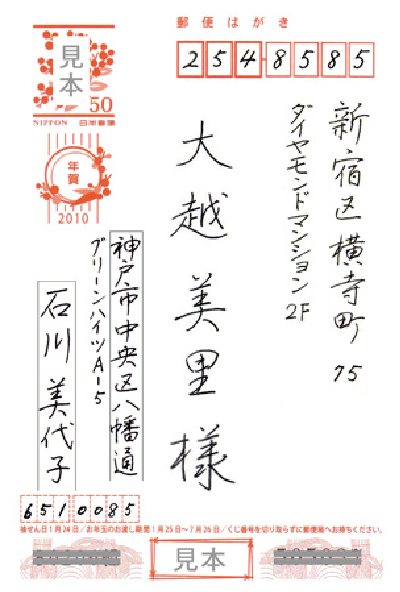 郵便はがき
254-8585
新宿区横寺町 75
ダイヤモンドマンション 2F
大越美里様
神戸市中央区八幡通
グリーンハイツA-5
石川美代子
6510085
見本
50
NIPPON 日本郵便
年賀
2010
抽せん日1月24日/お年玉のお渡し期間1月25日〜7月26日/くじ番号を切り取らずに郵便局へお持ちください。
見本